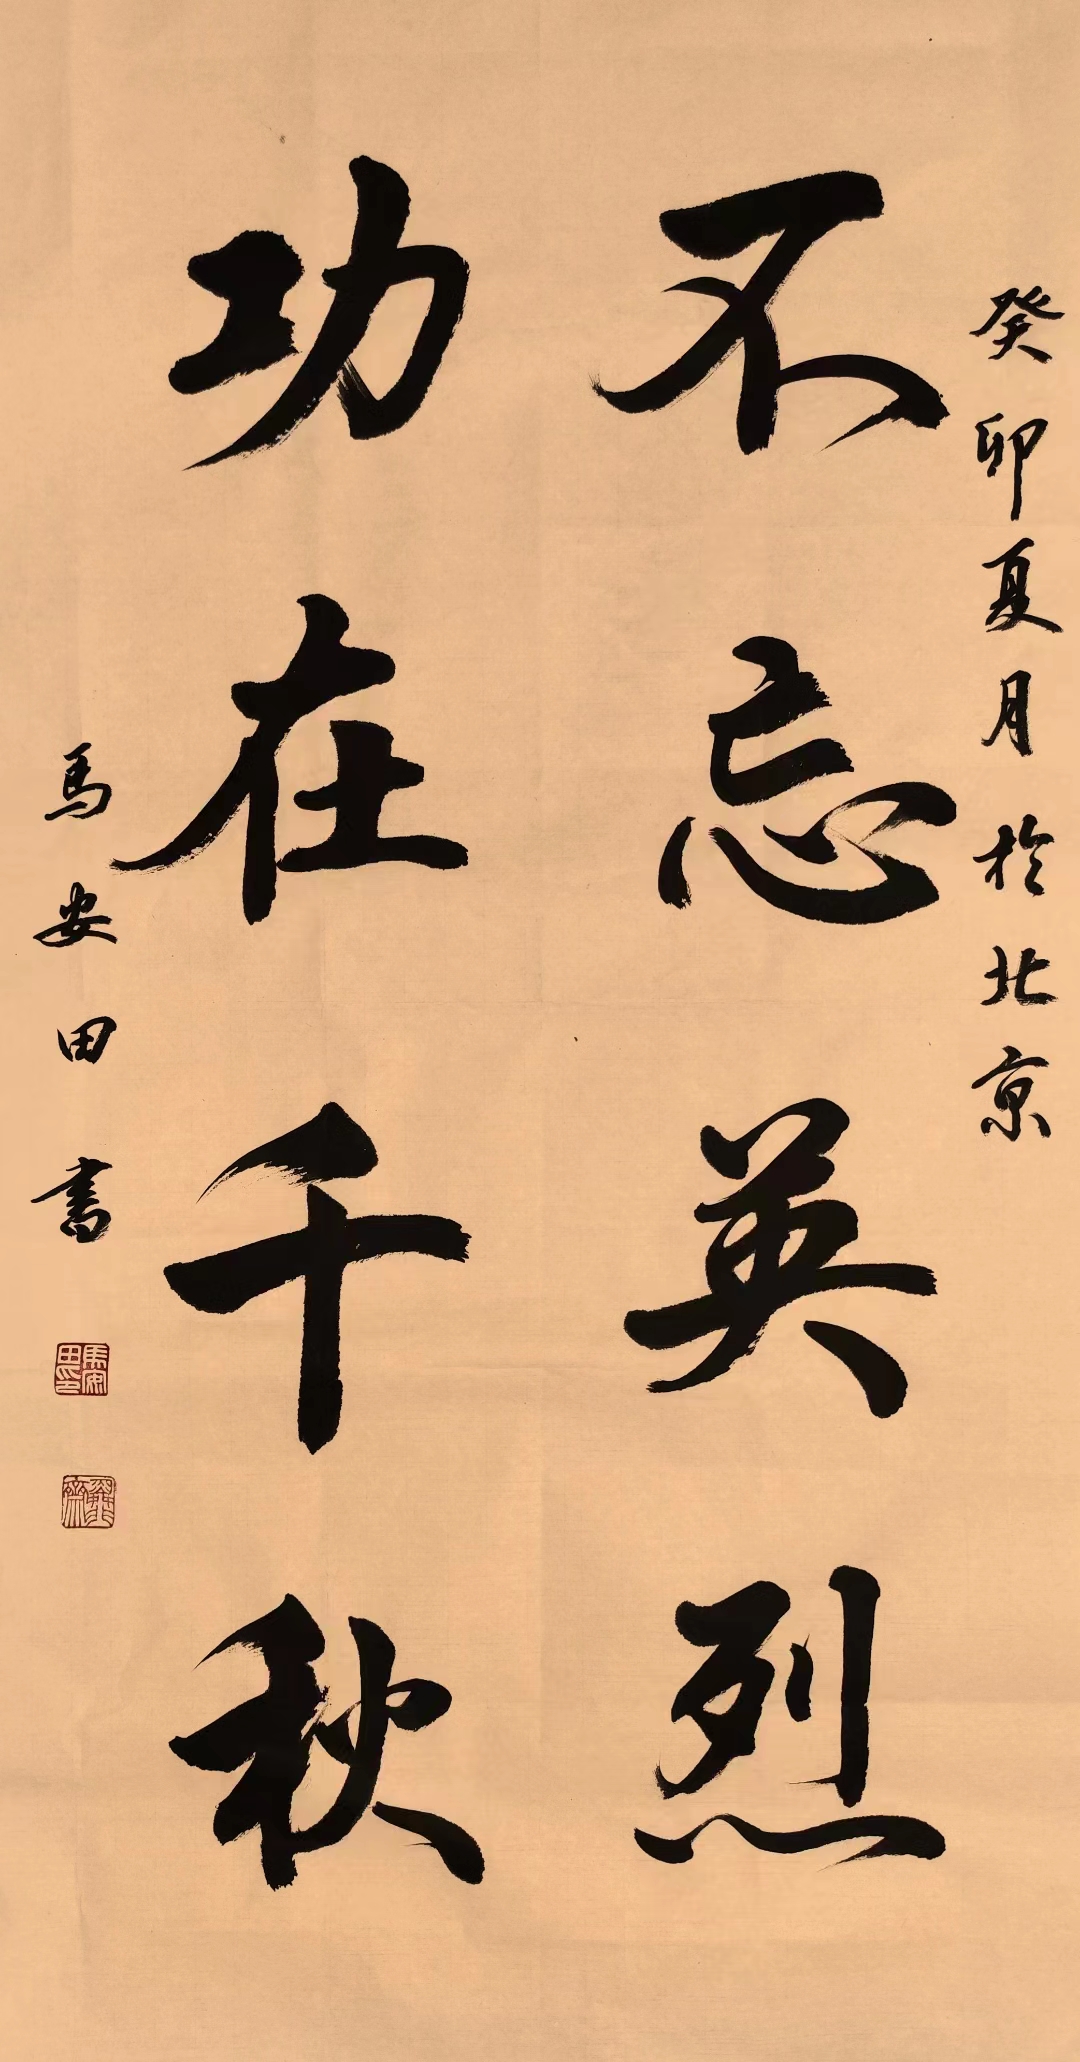 癸卯夏月於北京
不忘英烈
功在千秋
馬安田書
馬安田印